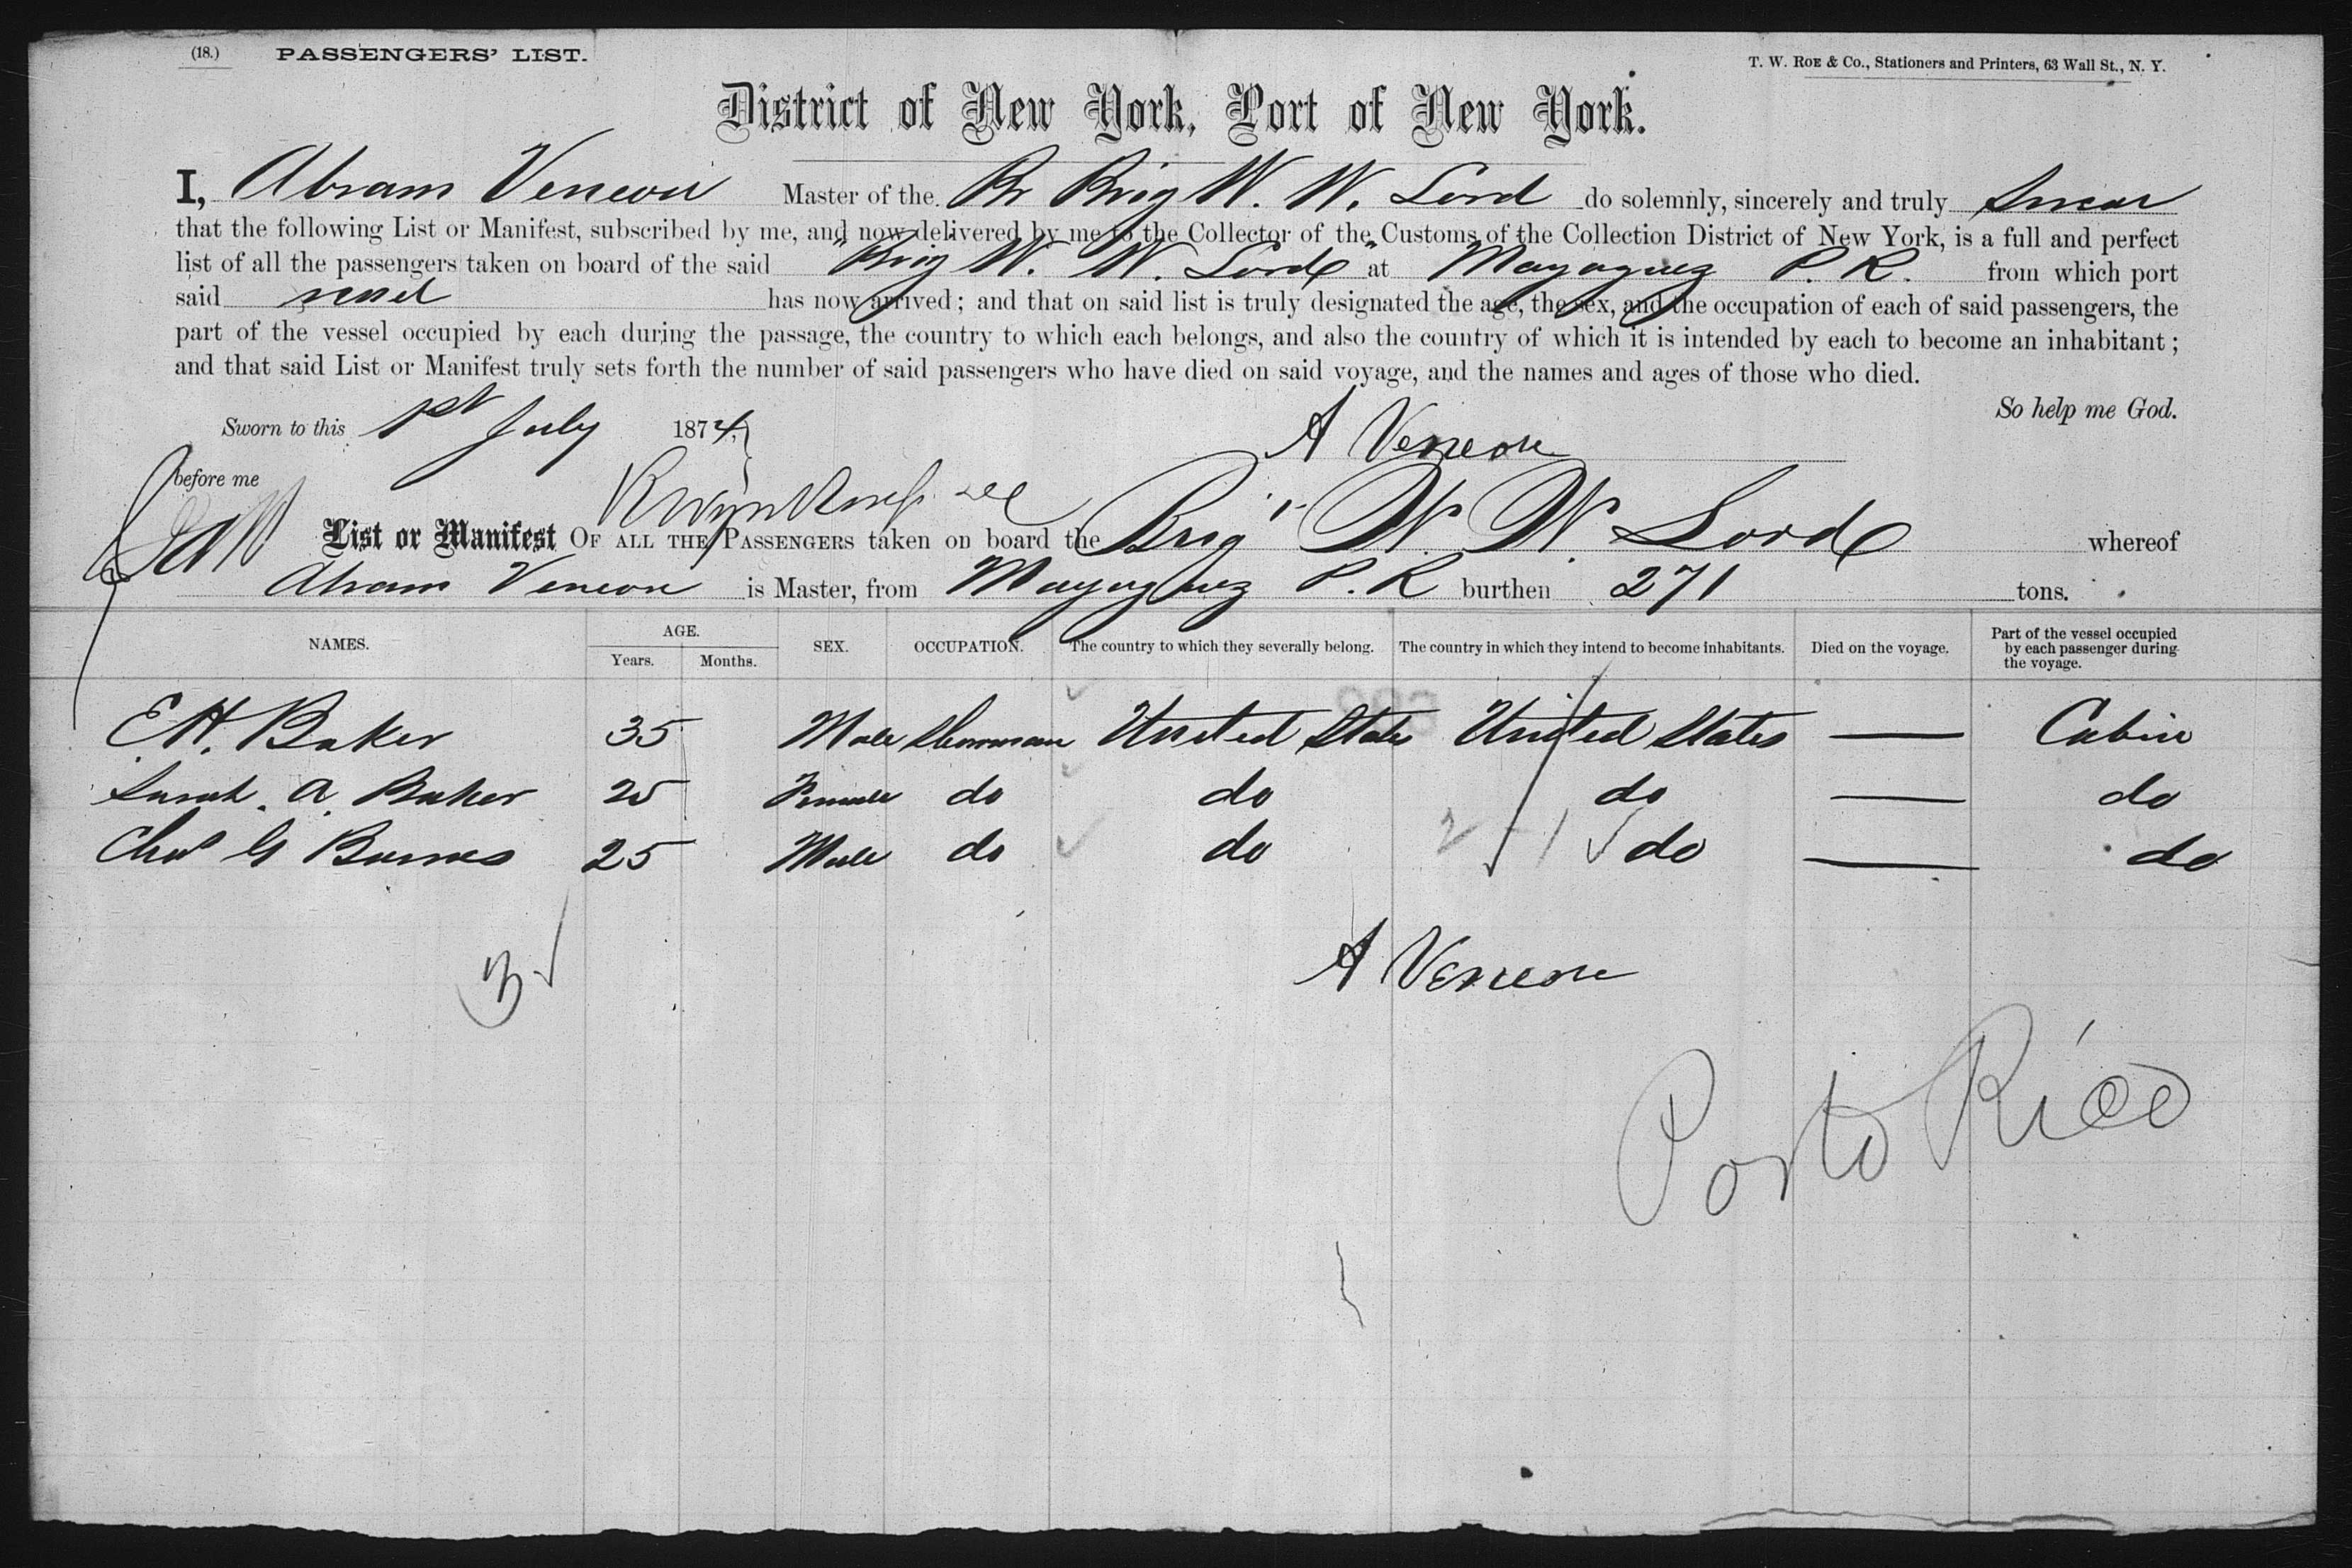 (18.) PASSENGERS' LIST.
T. W. ROE & Co., Stationers and Printers, 63 Wall St., N. Y.
District of New York, Port of New York.
I, Abram Veneou Master of the Br Brig W. W. Lord do solemnly, sincerely and truly Swear
that the following List or Manifest, subscribed by me, and now delivered by me to the Collector of the Customs of the Collection District of New York, is a full and perfect
list of all the passengers taken on board of the said "Brig W. W. Lord" at Mayaguez P. R. from which port
said vessel has now arrived; and that on said list is truly designated the age, the sex, and the occupation of each of said passengers, the
part of the vessel occupied by each during the passage, the country to which each belongs, and also the country of which it is intended by each to become an inhabitant;
and that said List or Manifest truly sets forth the number of said passengers who have died on said voyage, and the names and ages of those who died.
So help me God.
Sworn to this 1st July 1874,
A Veneou
before me
List or Manifest OF ALL THE PASSENGERS taken on board the Brig W. W. Lord whereof
Abram Veneou is Master, from Mayaguez P. R burthen 271 tons.
NAMES. AGE. Years. Months. SEX. OCCUPATION. The country to which they severally belong. The country in which they intend to become inhabitants. Died on the voyage. Part of the vessel occupied by each passenger during the voyage.
E H. Baker 35 Male United States United States — Cabin
Sarah. A. Baker 25 Female do do do — do
Chas G Barnes 25 Male do do do — do
3
A Veneou
Porto Rico